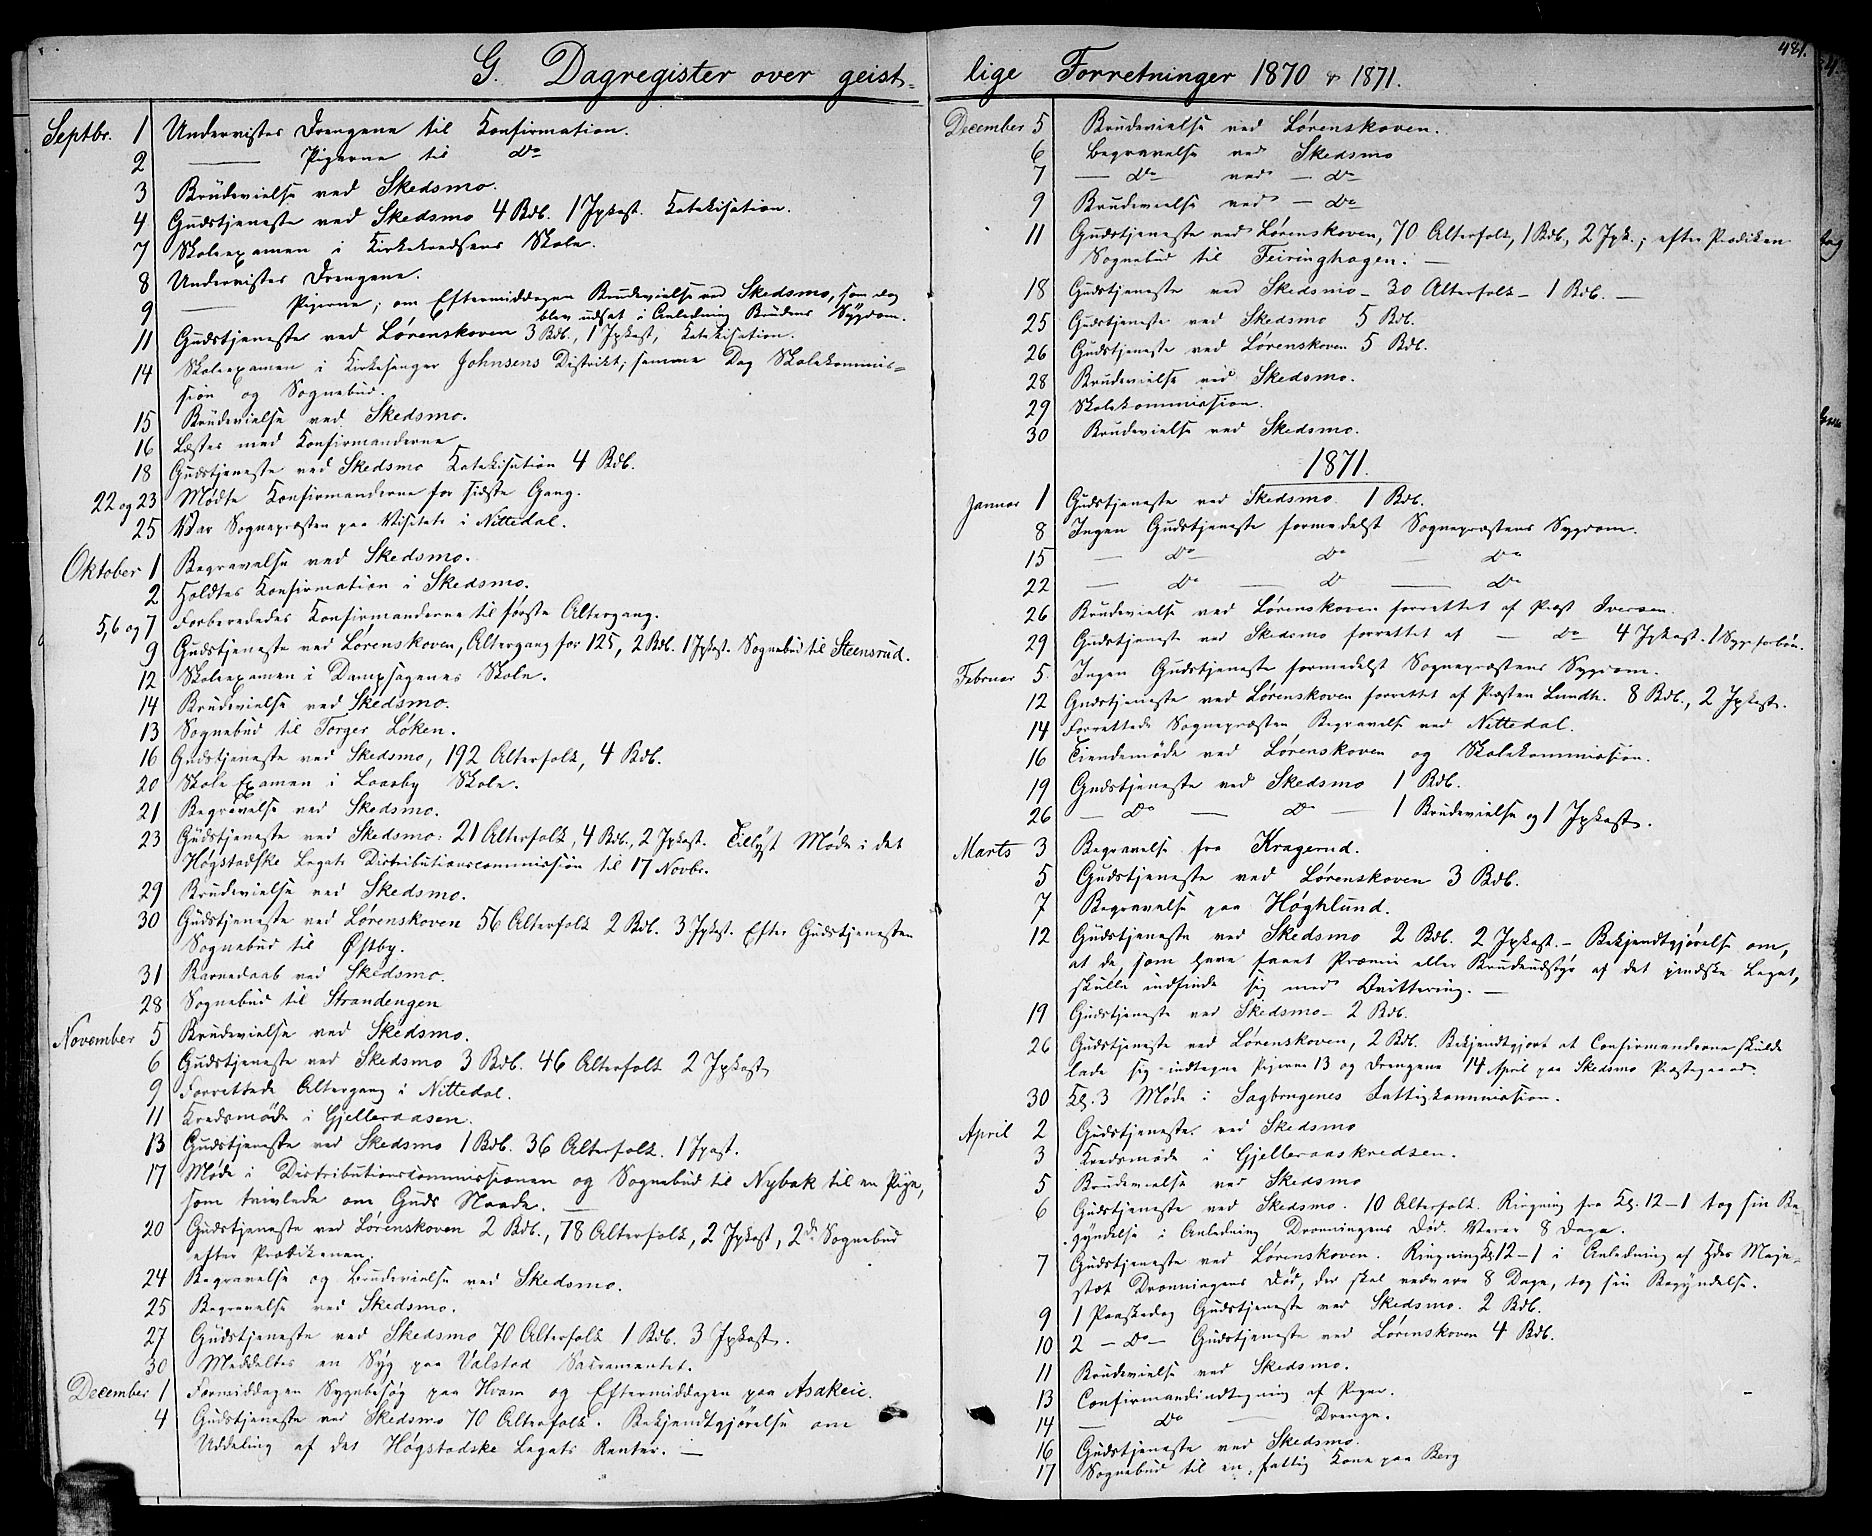 G. Dagregister over geist-
Septbr. 1 Undervistes Drengene til Konfirmation.
2 — Pigerne til Do
3 Brudevielse ved Skedsmo.
4 Gudstjeneste ved Skedsmo 4 Bdb. 1 Jpkast. Katekisation.
7 Skoleexamen i Kirkekredsens Skole.
8 Undervistes Drengene.
9 — Pigerne; om Eftermiddagen Brudevielse ved Skedsmo, som dog
blev udsat i Anledning Brudens Sygdom.
11 Gudstjeneste ved Lørenskoven 3 Bdb., 1 Jpkast, Katekisation.
14 Skoleexamen i Kirkesanger Johnsens Distrikt; samme Dag Skolekommis=
sion og Sognebud.
15 Brudevielse ved Skedsmo.
16 Læstes med Konfirmanderne
18 Gudstjeneste ved Skedsmo Katekisation 4 Bdb.
22 og 23 Mødte Konfirmanderne for sidste Gang.
25 Var Sognepræsten paa Visitats i Nittedal.
Oktober 1 Begravelse ved Skedsmo.
2 Holdtes Konfirmation i Skedsmo.
5, 6 og 7 Forberededes Konfirmanderne til første Altergang.
9 Gudstjeneste ved Lørenskoven, Altergang for 125, 2 Bdb. 1 Jpkast. Sognebud til Steensrud.
12 Skoleexamen i Dampsagenes Skole.
14 Brudevielse ved Skedsmo.
13 Sognebud til Torger Løken.
16 Gudstjeneste ved Skedsmo, 192 Alterfolk, 4 Bdb.
20 Skole Examen i Laasby Skole.
21 Begravelse ved Skedsmo.
23 Gudstjeneste ved Skedsmo: 21 Alterfolk, 4 Bdb., 2 Jpkast. Tillyst Møde i det
Høgstadske Legats Distributionscommission til 17 Novbr.
29 Brudevielse ved Skedsmo.
30 Gudstjeneste ved Lørenskoven 56 Alterfolk 2 Bdb. 3 Jpkast. Efter Gudstjenesten
Sognebud til Østby.
31 Barnedaab ved Skedsmo.
28 Sognebud til Strandengen
November 5 Brudevielse ved Skedsmo.
6 Gudstjeneste ved Skedsmo 3 Bdb. 46 Alterfolk 2 Jpkast
9 Forrettede Altergang i Nittedal.
11 Kredsmøde i Gjelleraasen.
13 Gudstjeneste ved Skedsmo 1 Bdb. 36 Alterfolk. 1 Jpast.
17 Møde i Distributionscommissionen og Sognebud til Nybak til en Pige,
som tvivlede om Guds Naade. —
20 Gudstjeneste ved Lørenskoven 2 Bdb., 78 Alterfolk, 2 Jpkast, 2de Sognebud
efter Prædikenen.
24 Begravelse og Brudevielse ved Skedsmo.
25 Begravelse ved Skedsmo.
27 Gudstjeneste ved Skedsmo 70 Alterfolk 1 Bdb. 3 Jpkast.
30 Meddeltes en Syg paa Valstad Sacramentet.
December 1 Formiddagen Sygebesøg paa Hvam og Eftermiddagen paa Asakeie.
4 Gudstjeneste ved Skedsmo 70 Alterfolk. Bekjendtgjørelse om
Uddeling af det Høgstadske Legats Renter. —
481.
lige Forretninger 1870 & 1871.
December 5 Brudevielse ved Lørenskoven.
6 Begravelse ved Skedsmo
7 — Do ved — Do
9 Brudevielse ved — Do
11 Gudstjeneste ved Lørenskoven, 70 Alterfolk, 1 Bdb, 2 Jpk.; efter Prediken
Sognebud til Feiringhagen. —
18 Gudstjeneste ved Skedsmo — 30 Alterfolk — 1 Bdb. —
25 Gudstjeneste ved Skedsmo 5 Bdb.
26 Gudstjeneste ved Lørenskoven 5 Bdb.
28 Brudevielse ved Skedsmo.
29 Skolekommission.
30 Brudevielse ved Skedsmo.
1871.
Januar 1 Gudstjeneste ved Skedsmo 1 Bdb.
8 Ingen Gudstjeneste formedelst Sognepræstens Sygdom.
15 — Do Do — Do
22 — Do — D — Do
26 Brudevielse ved Lørenskoven forrettet af Præst Iversen.
29 Gudstjenest ved Skedsmo forrettet af — Do 4 Jpkast. 1 Sygeforbøn.
Februar 5 Ingen Gudstjeneste formedelst Sognepræstens Sygdom.
12 Gudstjeneste ved Lørenskoven forrettet af Præsten Lundh. 8 Bdb., 2 Jpkast.
14 Forrettede Sognepræsten Begravelse ved Nittedal.
16 Tiendemøde ved Lørenskoven og Skolekommission.
19 Gudstjeneste ved Skedsmo 1 Bdb.
26 — Do — Do — 1 Brudevielse og 1 Jpkast.
Marts 3 Begravelse fra Kragerud.
5 Gudstjeneste ved Lørenskoven 3 Bdb.
7 Begravelse paa Høghlund.
12 Gudstjeneste ved Skedsmo 2 Bdb. 2 Jpkast. — Bekjendtgjørelse om,
at de, som have faaet Præmie eller Brudeudstyr af det Legat,
skulle indfinde sig med Qvittering. —
19 Gudstjeneste ved Skedsmo — 2 Bdb.
26 Gudstjeneste ved Lørenskoven, 2 Bdb. Bekjendtgjort at Confirmanderne skulde
lade sig indtegne Pigerne 13 og Drengene 14 April paa Skedsmo Præstegaard.
30 Kl. 3 Møde i Sagbrugenes Fattigkommission.
April 2 Gudstjeneste ved Skedsmo
3 Kredsmøde i Gjelleraaskredsen.
5 Brudevielse ved Skedsmo
6 Gudstjeneste ved Skedsmo. 10 Alterfolk. Ringning fra Kl. 12—1 tog sin Be-
gyndelse i Anledning Dronningens Død. Varer 8 Dage.
7 Gudstjeneste ved Lørenskoven. Ringning Kl 12—1 i Anledning af Hdes Maje-
stæt Dronningens Død, der skal vedvare 8 Dage, tog sin Begyndelse.
9 1 Paaskedag Gudstjeneste ved Skedsmo. 2 Bdb.
10 2 — Do — Gudstjeneste ved Lørenskoven 4 Bdb.
11 Brudevielse ved Skedsmo.
13 Confirmandindtegning af Piger.
14 — Do — Drenge.
16 Gudstjeneste ved Skedsmo.
17 Sognebud til en fattig Kone paa Berg